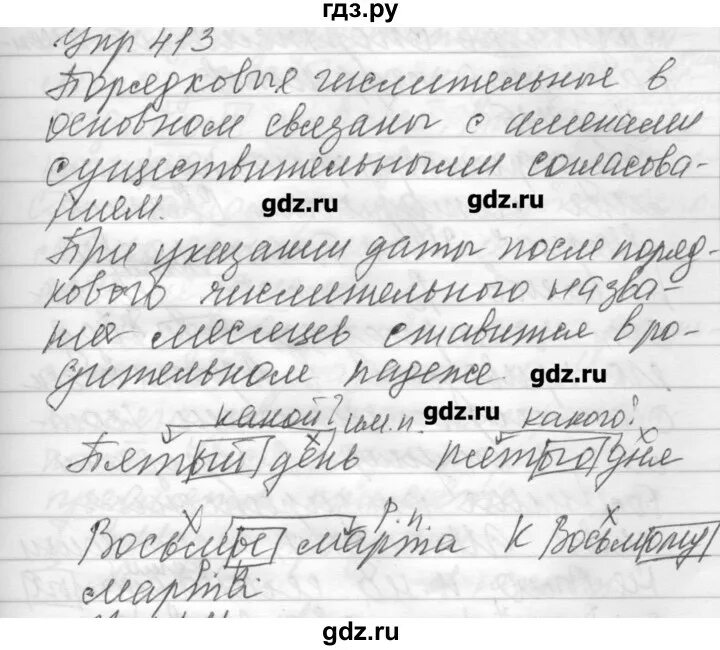 гдз.ру
Упр 413
Порядковые числительные в
основном связаны с именами
существительными согласова-
нием.
gdz.ru gdz.ru
При указании даты после поряд-
кового числительного назва-
ния месяцев ставится в ро-
дительном падеже.
gdz.ru
какой? им.п. gdz.ru какого?
х х
Пятый день пятого дня
х р.п. х
Восьмое марта к Восьмому
марта.
gdz.ru